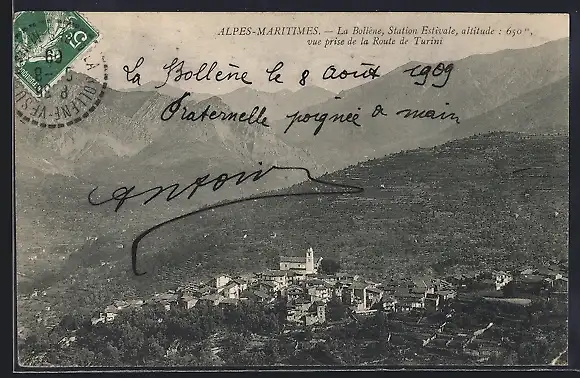 ALPES-MARITIMES. — La Bollène, Station Estivale, altitude : 650m,
vue prise de la Route de Turini
La Bollène le 8 août 1909
Fraternelle poignée de main
Antoin
5